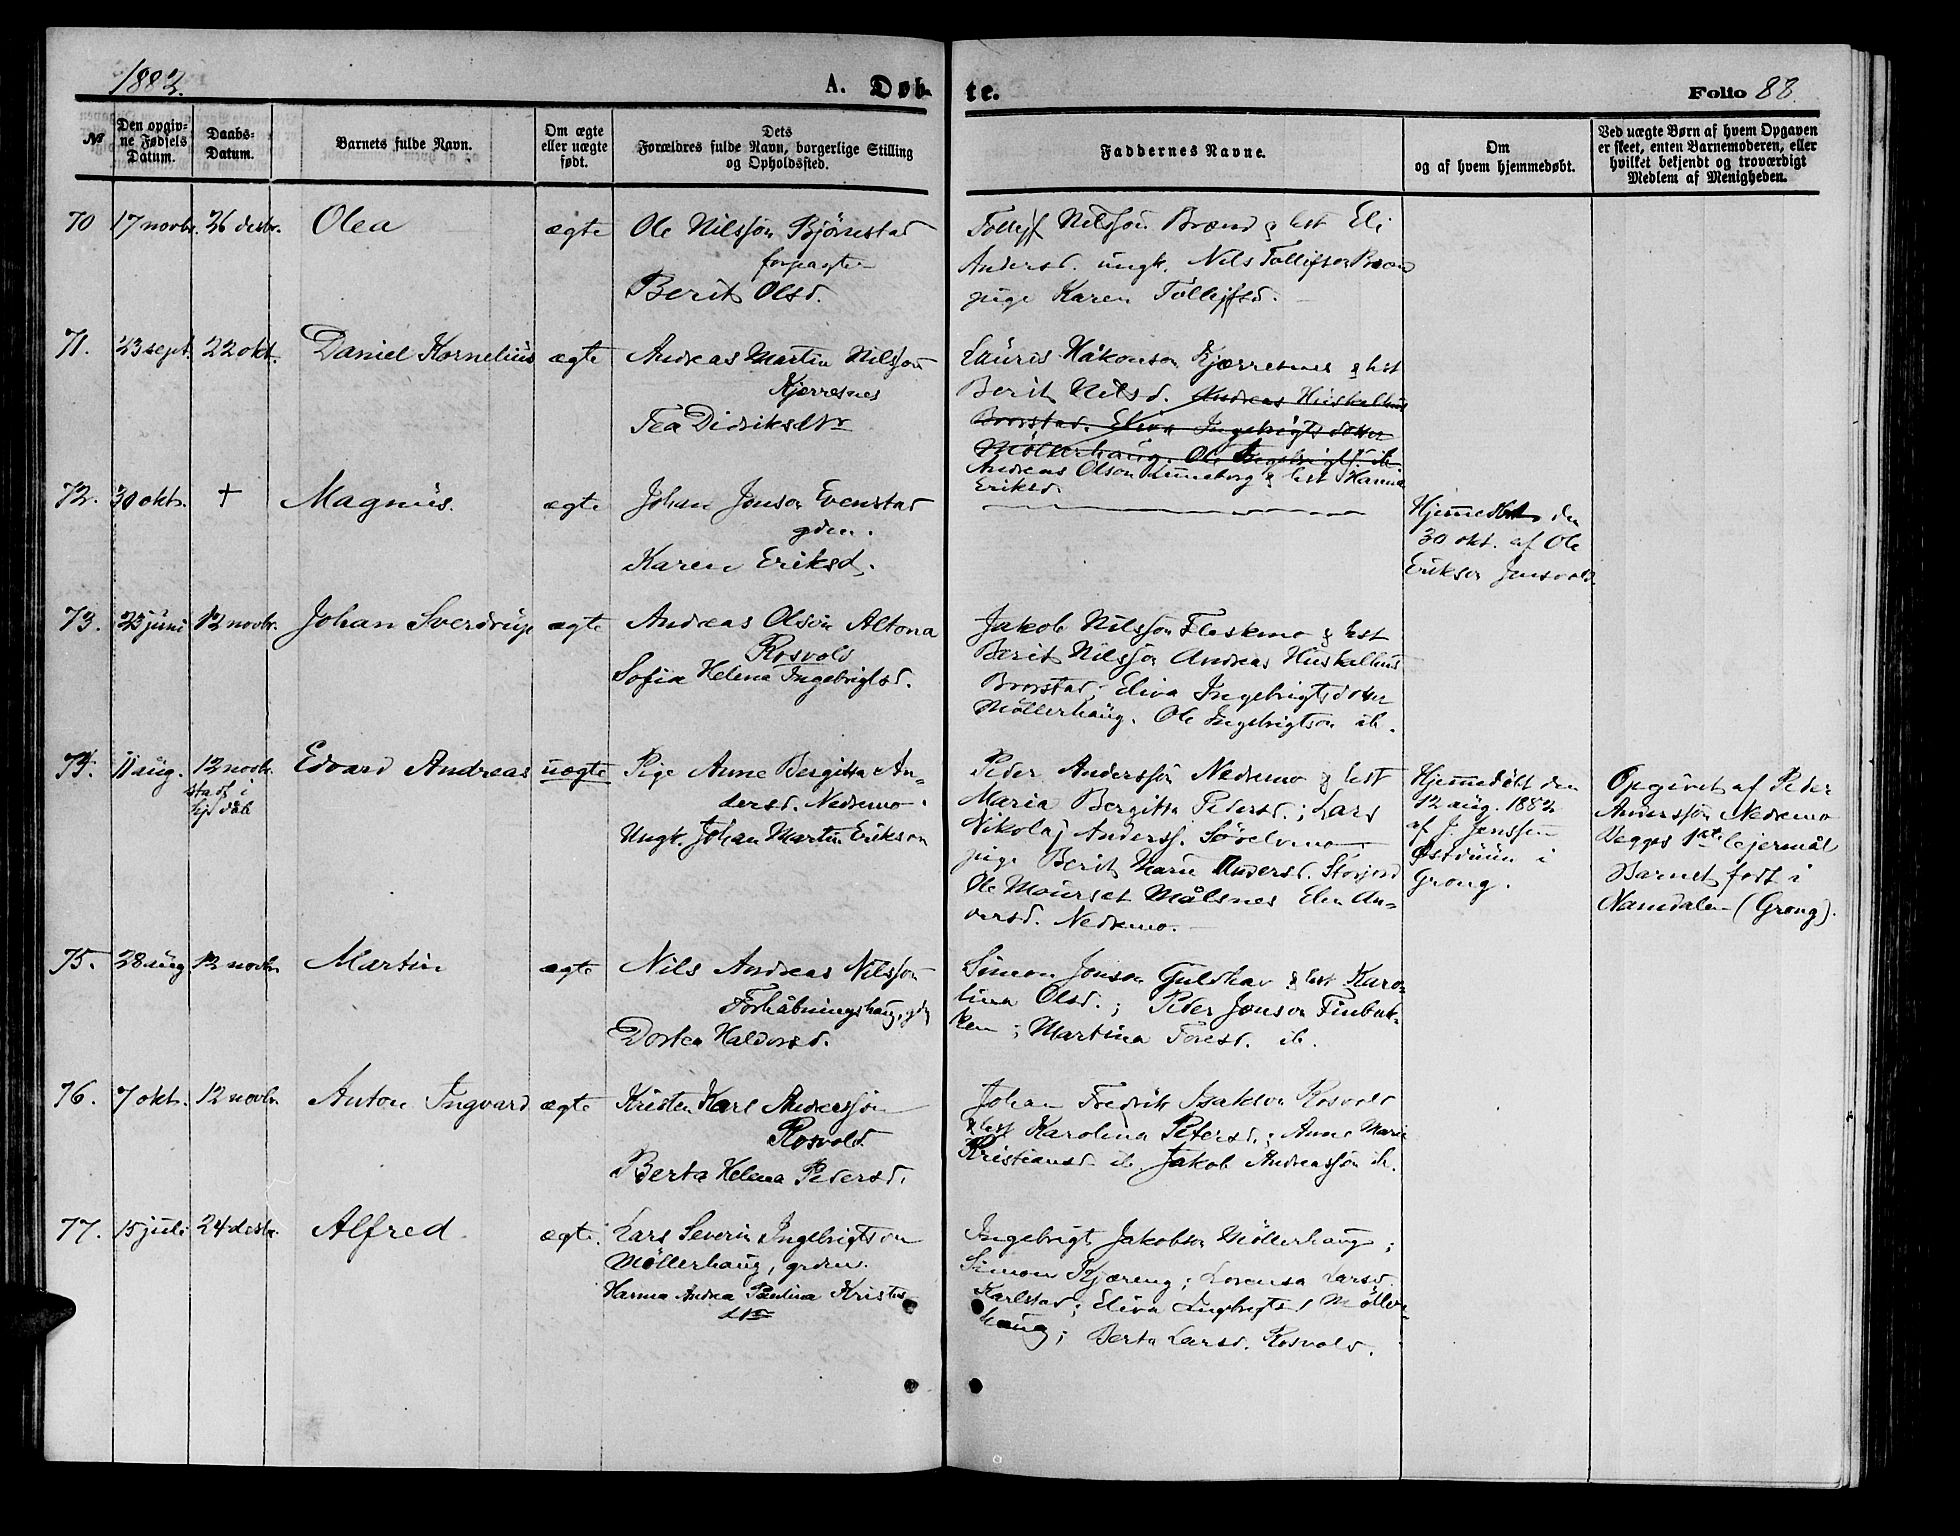 1882.
A. Døb-
te.
Folio 88.
№
Den opgiv-
ne Fødsels
Datum.
Daabs-
Datum.
Barnets fulde Navn.
Om ægte
eller uægte
født.
Dets
Forældres fulde Navn, borgerlige Stilling
og Opholdssted.
Faddernes Navne.
Om
og af hvem hjemmedøbt.
Ved uægte Børn af hvem Opgaven
er skeet, enten Barnemoderen, eller
hvilket bekjendt og troværdigt
Medlem af Menigheden.
70 17 novbr. 26 desbr. Olea ægte
Ole Nilssøn Bjørnstad
forpagter
Berit Olsd.
Tollef Nilssøn Brænd & hst Eli
Andersd. ungk. Nils Tollefson
pige Karen Tollefsd.
71. 23 sept. 22 okt. Daniel Kornelius ægte
Andreas Martin Nilssøn
Kjærresnes
Tea Didriksdtr
Lauris Håkonson Kjærresnes & hst
Berit Nilsd. Andreas Huskelhus
Brorstad. Eliva Ingebrigtsdotter
Möllerhaug. Ole Ingebrigts. ib
Andreas Olson & hst Hanna
Eriksd.
72. 30 okt. + Magnus. ægte
Johan Jonson Evenstad
gdm.
Karen Eriksd.
Hjemmedöbt den
30 okt. af Ole
Erikson Jensvold
73. 23 juni 12 novbr. Johan Sverdrup ægte
Andreas Olson Altona
Rosvold
Sofia Helena Ingebrigtsd.
Jakob Nilssøn Fleskmo & hst
Berit Nilssøn Andreas Huskelhus
Brorstad; Eliva Ingebrigtsdotter
Möllerhaug. Ole Ingebrigtson ib.
74. 11 aug. 12 novb.
stadf i
hjd dåb
Edvard Andreas uægte
Pige Anne Bergitta An-
dersd. Nedremo.
Ungk. Johan Martin Erikson
Peder Anderssøn Nedremo & hst
Maria Bergitta Pedersd.; Lars
Nikolaj Anderss.
pige Berit Marie Andersd.
Ole Mourset Målsnes Elen An-
dersd. Nedremo.
Hjemmedöbt den
12 aug. 1882
af J. Jenssen
i
Grong.
Opgivet af Peder
Anderssøn Nedremo
Begges 1ste lejermål
Barnet født i
Namdalen (Grong).
75. 28 aug 12 novbr. Martin ægte
Nils Andreas Nilssøn
Forhåbningshaug, gdm
Dortea Haldorsd.
Simon Jonson Guldhav & hst Karo-
lina Olsd.; Peder Jonson Finbak-
ken; Martina Toresd. ib.
76. 7 okt. 12 novbr. Anton Ingvard ægte
Kristen Karl Anderssøn
Rosvold
Berta Helena Pedersd.
Johan Fredrik Isakson Rosvold
& hst Karolina Petersd.; Anne Marie
Kristiansd. ib Jakob Andreassøn ib.
77. 15 juli 24 desbr. Alfred ægte.
Lars Severin Ingebrigtson
Möllerhaug, grdm.
Hanna Andrea Paulina Kristens-
dtr
Ingebrigt Jakobson Möllerhaug;
Simon Kjæreng; Lorensa Larsd.
Karlstad; Eliva Ingebrigtsd Möller-
haug; Berta Larsd. Rosvold.